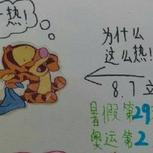 热!
为什么
这么热!
8.7立
暑假第29
奥运第2